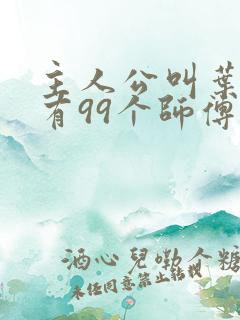 主人公叫葉
有99个師傅
酒心兒嘞个糖
未经同意禁止转载